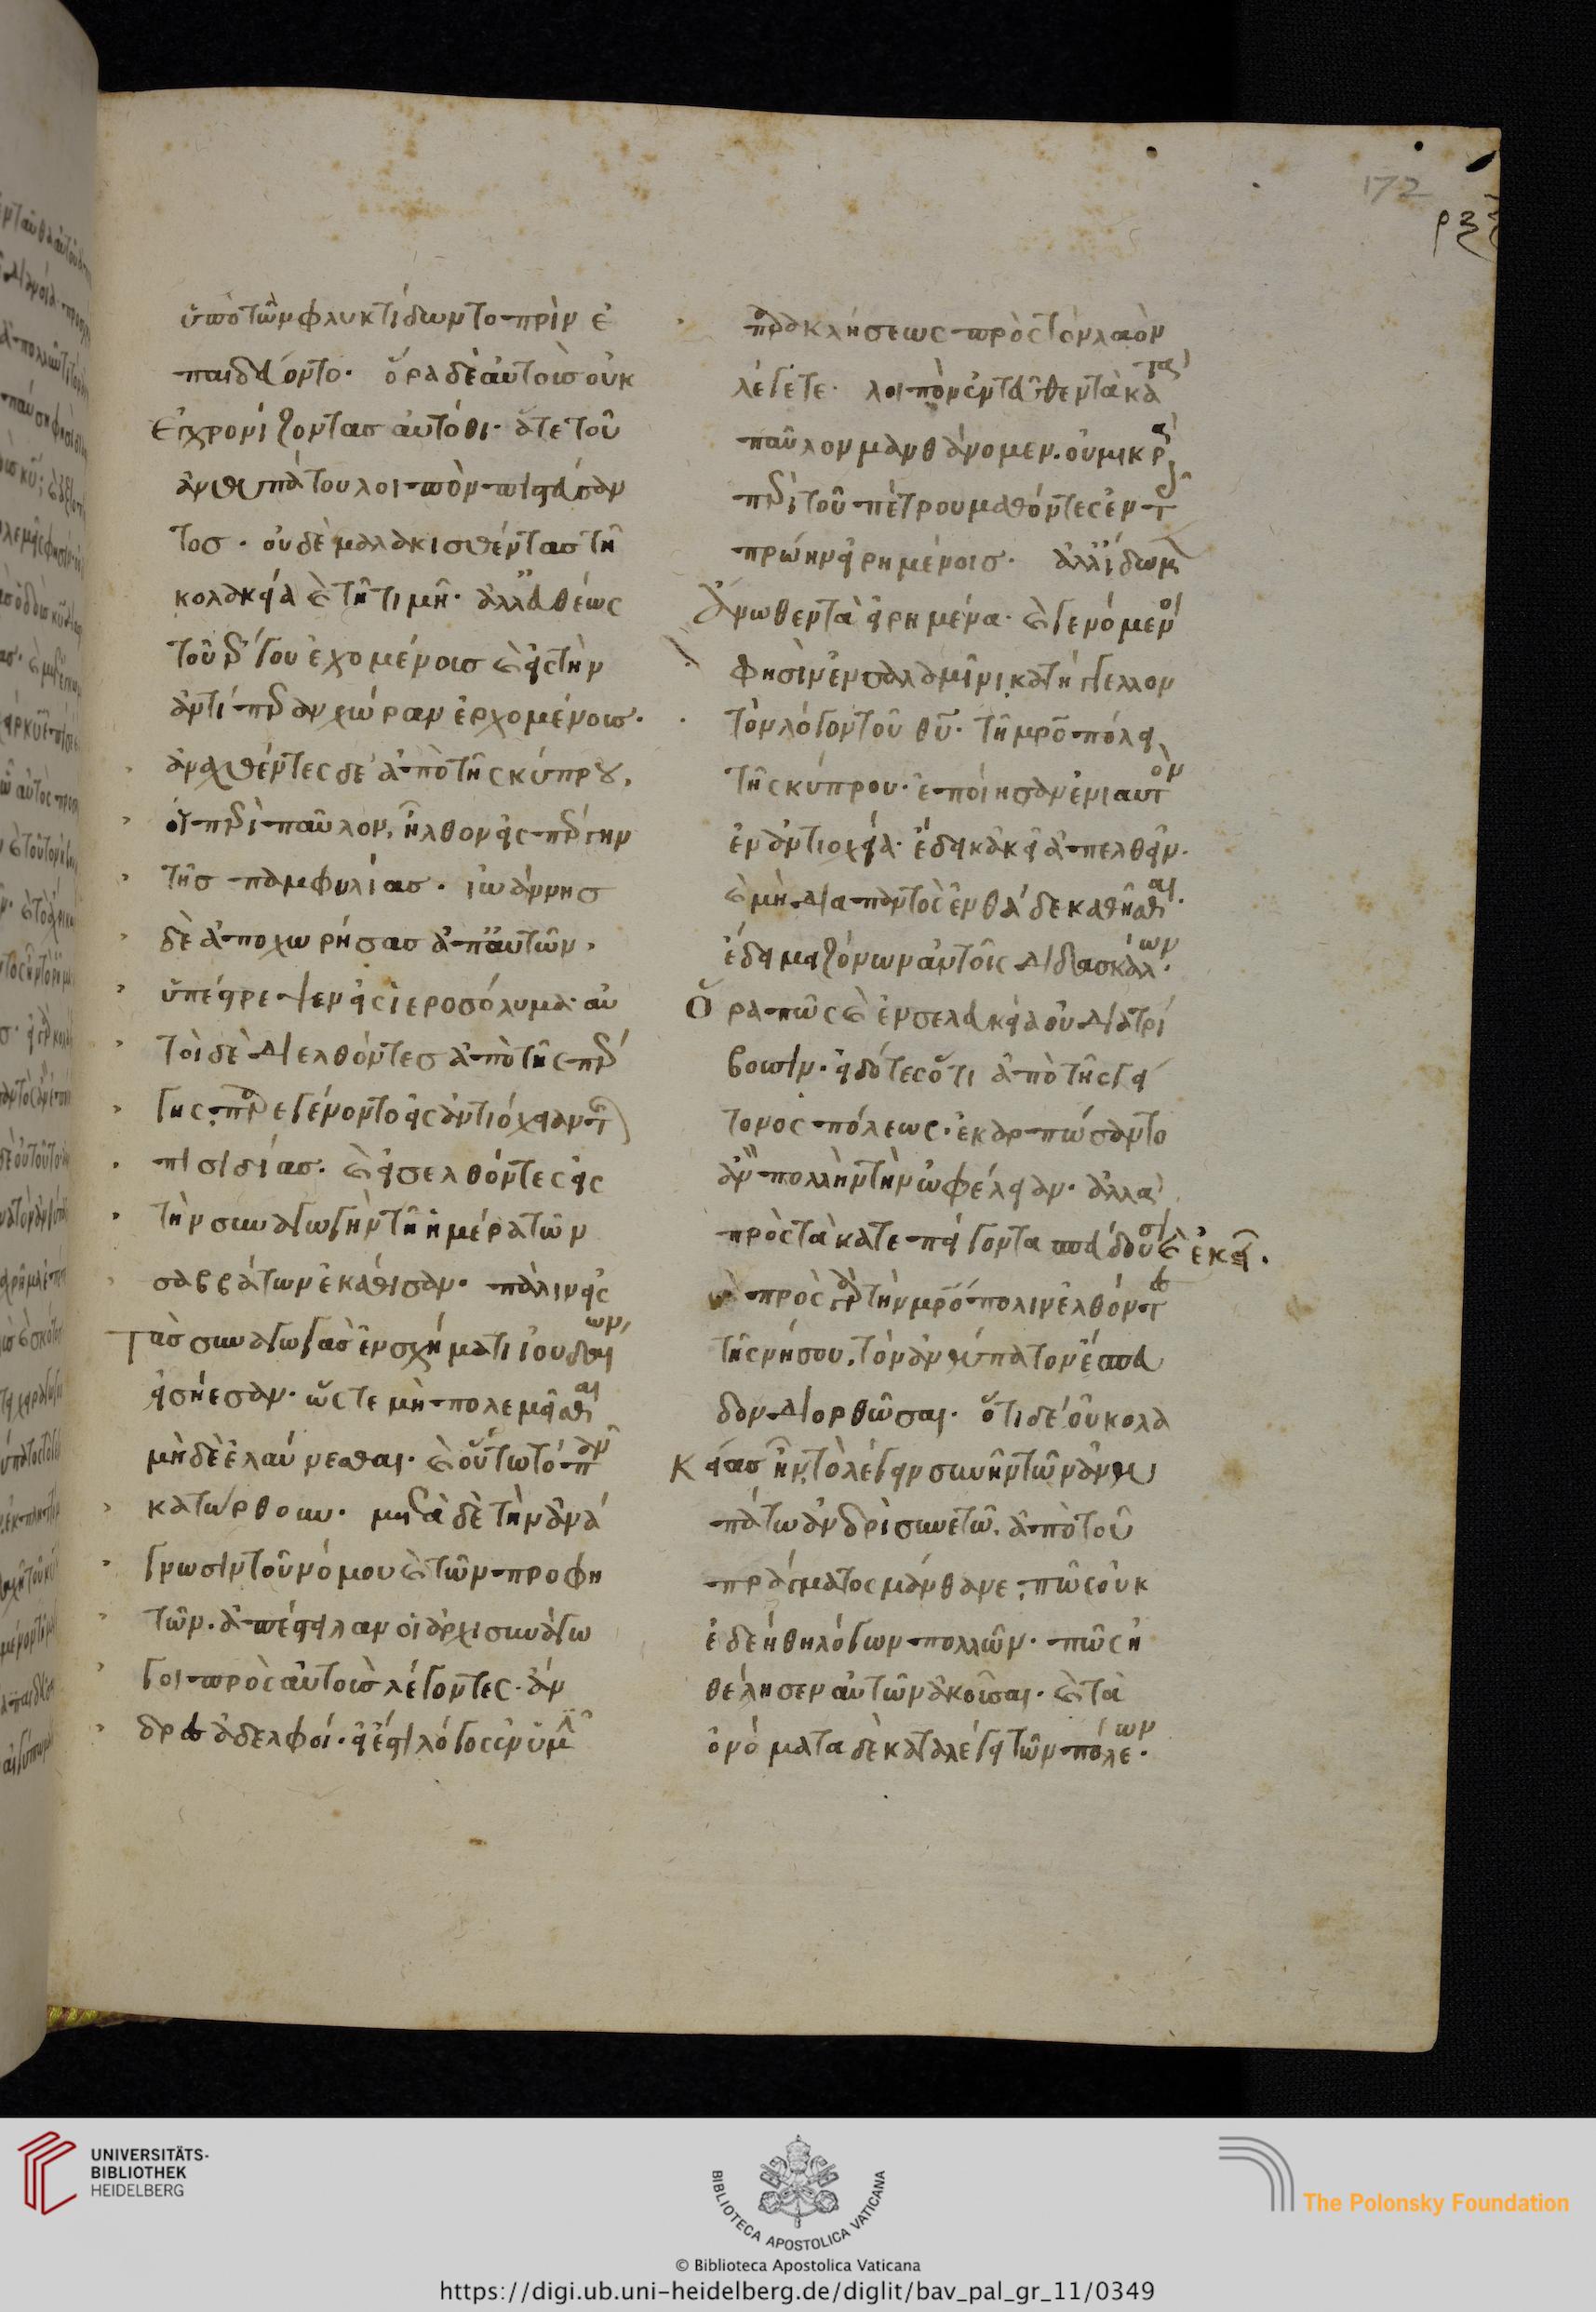 172
ὑπὸ τῶν φλυκτίδων τοπρὶν ἐ
παιδεύοντο. ὅρα δὲ αὐτοὺς οὐκ
ἐγχρονίζοντας αὐτόθι. ἅτε τοῦ
ἀνθυπάτου λοιπὸν πιστεύσαν
τος. οὐδὲ μαλακισθέντας τῆ
κολακεία καὶ τῆ τιμῆ. ἀλλ' εὐθέως
τοῦ ἔργου ἐχομένους καὶ εἰς τὴν
ἀντιπέραν χώραν ἐρχομένους.
ἀναχθέντες δὲ ἀπὸ τῆς κύπρου,
οἱ περὶ παῦλον, ἦλθον εἰς πέργην
τῆς παμφυλίας. ἰωάννης
δὲ ἀποχωρήσας ἀπ' αὐτῶν,
ὑπέστρεψεν εἰς ἱεροσόλυμα. αὐ
τοὶ δὲ διελθόντες ἀπὸ τῆς πέρ
γης, παρεγένοντο εἰς ἀντιόχειαν τῆς
πισιδίας. καὶ εἰσελθόντες εἰς
τὴν συναγωγὴν τῆ ἡμέρα τῶν
σαββάτων ἐκάθισαν. πάλιν εἰς
τὰς συναγωγὰς ἐν σχήματι ἰουδαίων,
εἰσήεσαν. ὥστε μὴ πολεμεῖσθαι
μὴδὲ ἐλαύνεσθαι. καὶ οὕτω τὸ πᾶν
κατώρθουν. μετὰ δὲ τὴν ἀνά
γνωσιν τοῦ νόμου καὶ τῶν προφη
τῶν. ἀπέστειλαν οἱ ἀρχισυνάγω
γοι πρὸς αὐτοὺς λέγοντες. ἄν
δρες ἀδελφοί. εἰ ἔστι λόγος ἐν ὑμῖν
παρακλήσεως πρὸς τὸν λαὸν
λέγετε. λοιπὸν ἐντεῦθεν τὰ κατὰ
παῦλον μανθάνομεν. οὐ μικρὰ
περὶ τοῦ πέτρου μαθόντες ἐν τοῖς
πρώην εἰρημένοις. ἀλλ' ἴδωμεν
ἄνωθεν τὰ εἰρημένα. καὶ γενόμενοι
φησὶν ἐν σαλαμῖνι κατήγγελλον
τὸν λόγον τοῦ θυ. τῆ μρο πόλει
τῆς κύπρου. ἐποίησαν ἐνιαυτὸν
ἐν ἀντιοχεία. ἔδει κἀκεῖ ἀπελθεῖν.
καὶ μὴ διαπαντὸς ἐνθάδε καθῆσθαι.
ἔδει μειζόνων αὐτοῖς διδασκάλων.
Ὅρα πῶς καὶ ἐν σελευκεία οὐ διατρί
βουσιν. εἰδότες ὅτι ἀπὸ τῆς γεί
τονος πόλεως. ἐκαρπώσαντο
ἂν πολλὴν τὴν ὠφέλειαν. ἀλλὰ
πρὸς τὰ κατεπείγοντα σπεύδουσι καὶ ἐκεῖ.
πρὸς γὰρ τὴν μροπολιν ἐλθόντες
τῆς νήσου, τὸν ἀνθύπατον ἔσπευ
δον διορθῶσαι. ὅτι δὲ οὐ κολα
κείας ἦν, τὸ λέγειν συνῆν τῶ ἀνθυ
πάτω ἀνδρὶ συνετῶ. ἀπὸ τοῦ
πράγματος μάνθανε, πῶς οὐκ
ἐδεήθη λόγων πολλῶν. πῶς ἠ
θέλησεν αὐτῶν ἀκοῦσαι. καὶ τὰ
ὀνόματα δὲ καταλέγει τῶν πόλεων.
UNIVERSITÄTS-
BIBLIOTHEK
HEIDELBERG
BIBLIOTECA APOSTOLICA VATICANA
The Polonsky Foundation
© Biblioteca Apostolica Vaticana
https://digi.ub.uni-heidelberg.de/diglit/bav_pal_gr_11/0349